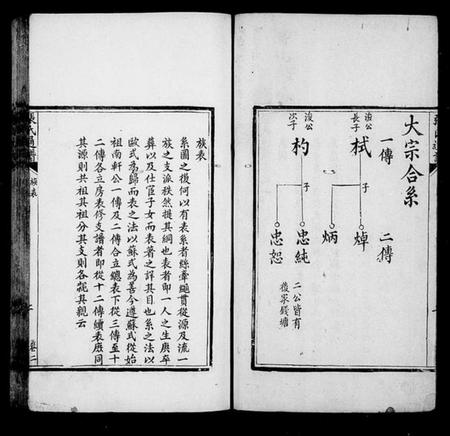 大宗合系
一傳
二傳
浚公長子
栻
子
焯
炳
浚公次子
杓
子
忠純
忠恕
二公皆有後家錢塘
族表
系圖之後何以有表系者絲牽繩貫從源及流一
族之支派秩然挺其綱也表者即一人之生庚卒
葬以及仕宦子女而表著之詳其目也系之法以
歐式為歸而表之法以蘇式為善今遵蘇式從始
祖南軒公一傳及二傳合立總表下從三傳至十
二傳各立房表修支譜者即從十二傳續表庶同
其源則共祖其祖分其支則各親其親云
張氏通譜
族表
卷二